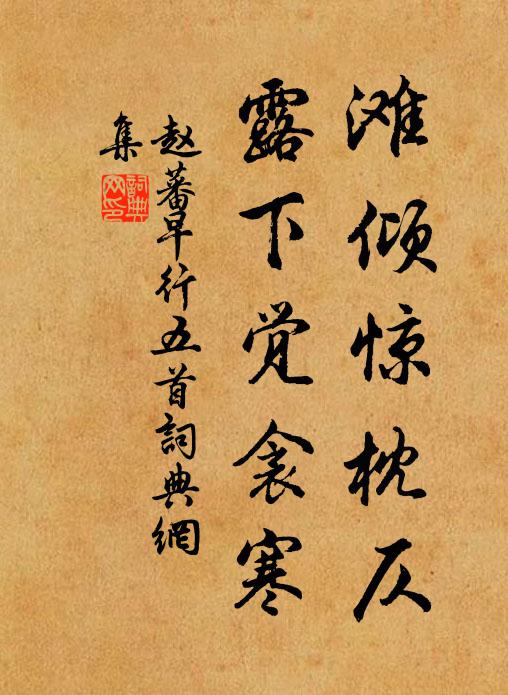 滩倾惊枕仄
露下觉衾寒
赵蕃早行五首詞典網
集
詞典网印